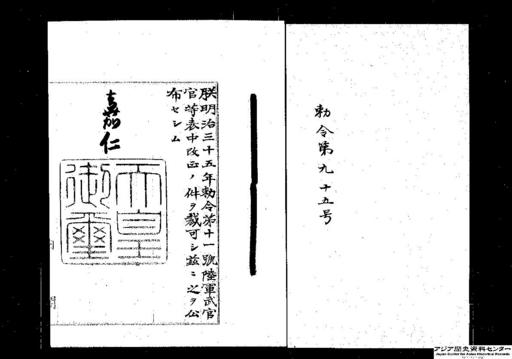 勅令第九十五号
朕明治三十五年勅令第十一號陸軍武官
官等表中改正ノ件ヲ裁可シ茲ニ之ヲ公
布セシム
嘉仁
天皇御璽
アジア歴史資料センター
Japan Center for Asian Historical Records